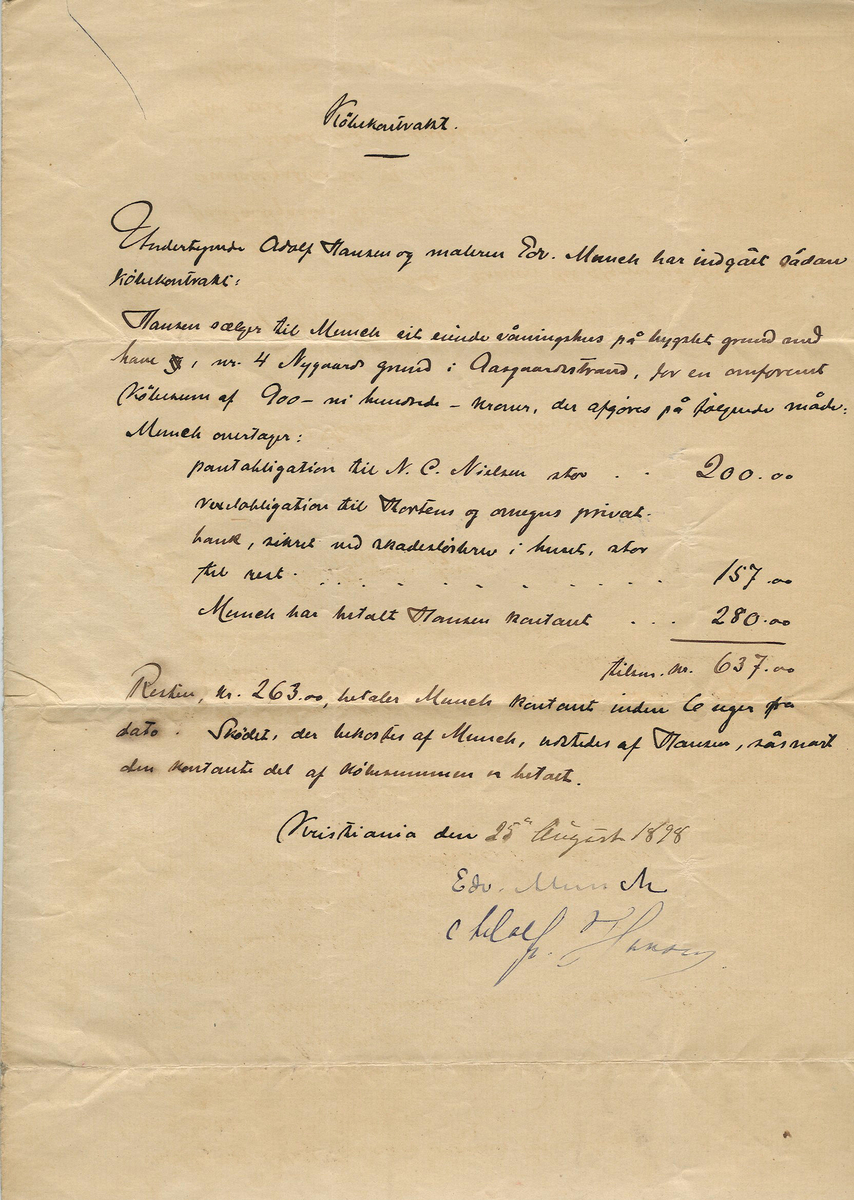 Købekontrakt.
Undertegnede Adolf Hansen og maleren Edv. Munch har indgået sådan
købekontrakt:
Hansen sælger til Munch sit eiende våningshus på bygslet grund med
have, nr. 4 Nygaards grund i Aasgaardsstrand, for en omforenet
købesum af 900 – ni hundrede – kroner, der afgøres på følgende måde:
Munch overtager:
pantobligation til N. C. Nielsen stor . . 200.00
vexelobligation til Hortens og omegns privat-
bank, sikret ved skadesløsbrev i huset, stor
til rest . . . . . . . . . . 157.00
Munch har betalt Hansen kontant . . . 280.00
tilsm. kr. 637.00
Resten, kr. 263.00, betaler Munch kontant inden 6 uger fra
dato. Skødet, der bekostes af Munch, udstedes af Hansen, såsnart
den kontante del af købesummen er betalt.
Kristiania den 25 August 1898
Edv. Munch
Adolf Hansen